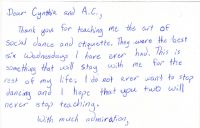 Dear Cynthia and A.C.,
Thank you for teaching me the art of
social dance and etiquette. They were the best
six Wednesdays I have ever had. This is
something that will stay with me for the
rest of my life; I do not ever want to stop
dancing and I hope that you two will
never stop teaching.
With much admiration,